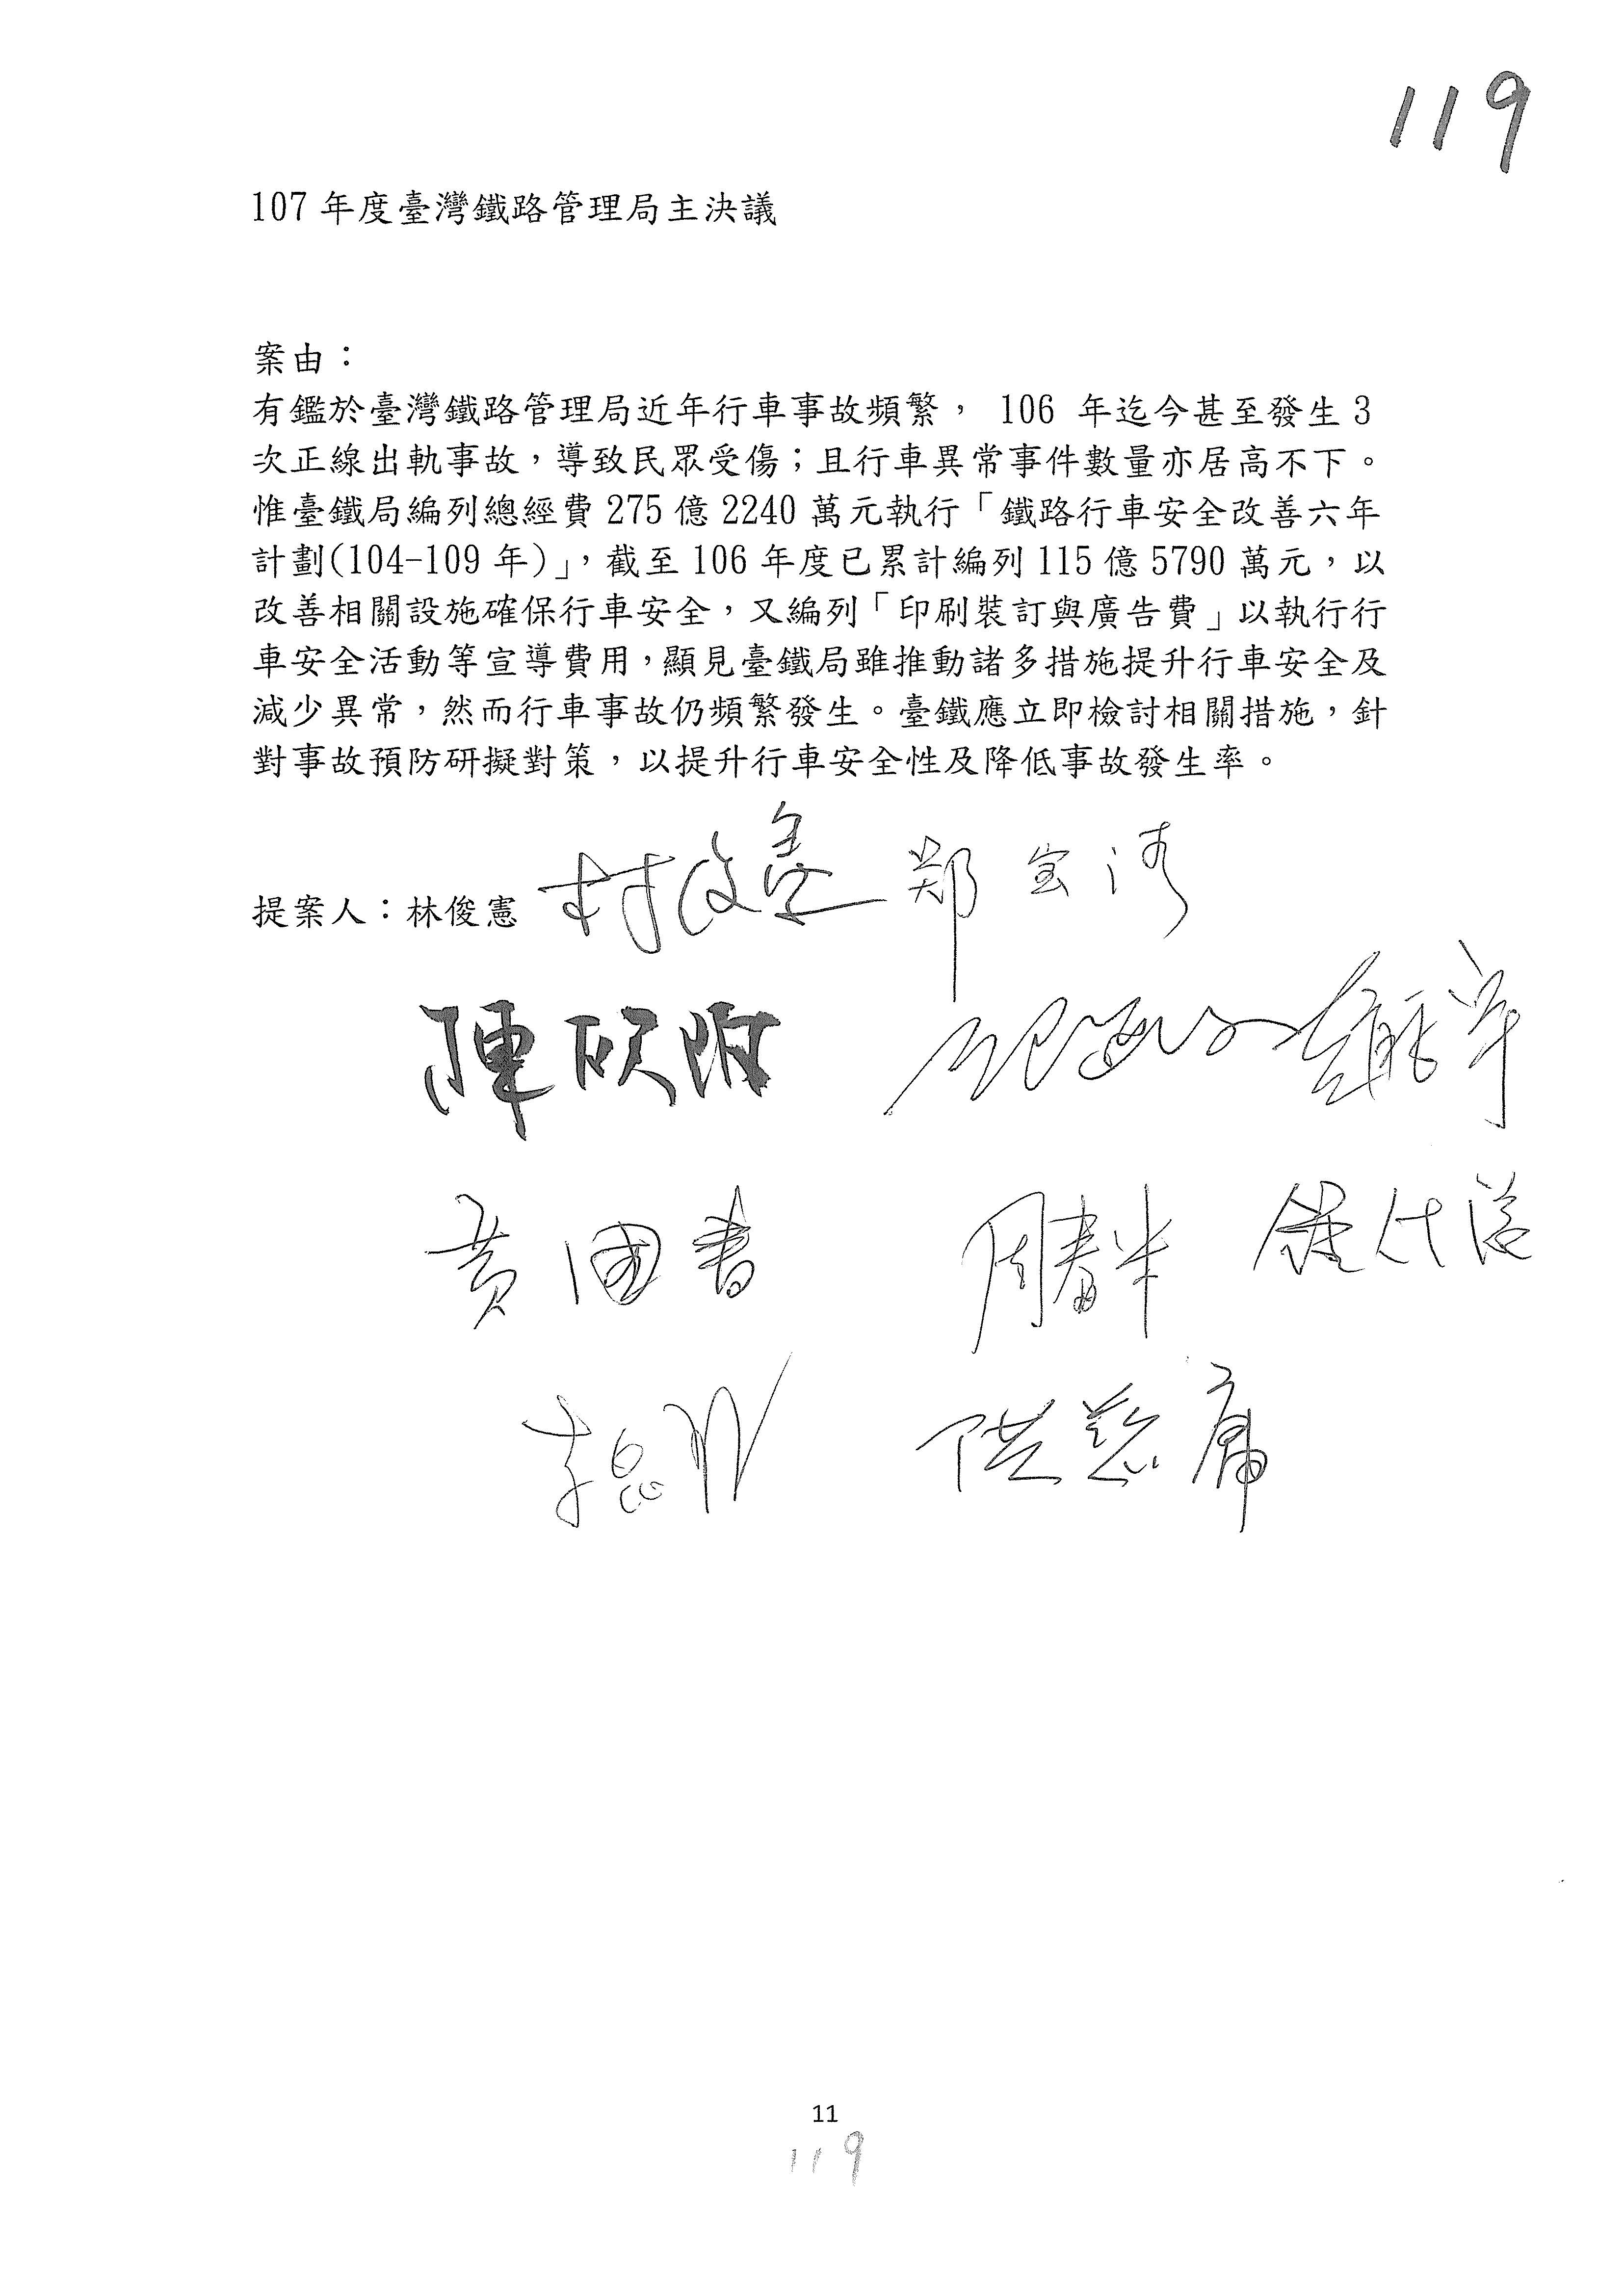 119
107 年度臺灣鐵路管理局主決議
案由：
有鑑於臺灣鐵路管理局近年行車事故頻繁， 106 年迄今甚至發生 3
次正線出軌事故，導致民眾受傷；且行車異常事件數量亦居高不下。
惟臺鐵局編列總經費 275 億 2240 萬元執行「鐵路行車安全改善六年
計劃(104-109 年)」，截至 106 年度已累計編列 115 億 5790 萬元，以
改善相關設施確保行車安全，又編列「印刷裝訂與廣告費」以執行行
車安全活動等宣導費用，顯見臺鐵局雖推動諸多措施提升行車安全及
減少異常，然而行車事故仍頻繁發生。臺鐵應立即檢討相關措施，針
對事故預防研擬對策，以提升行車安全性及降低事故發生率。
提案人：林俊憲 林俊憲 鄭宝清
陳
黃國書 周春米
洪慈庸
11
119